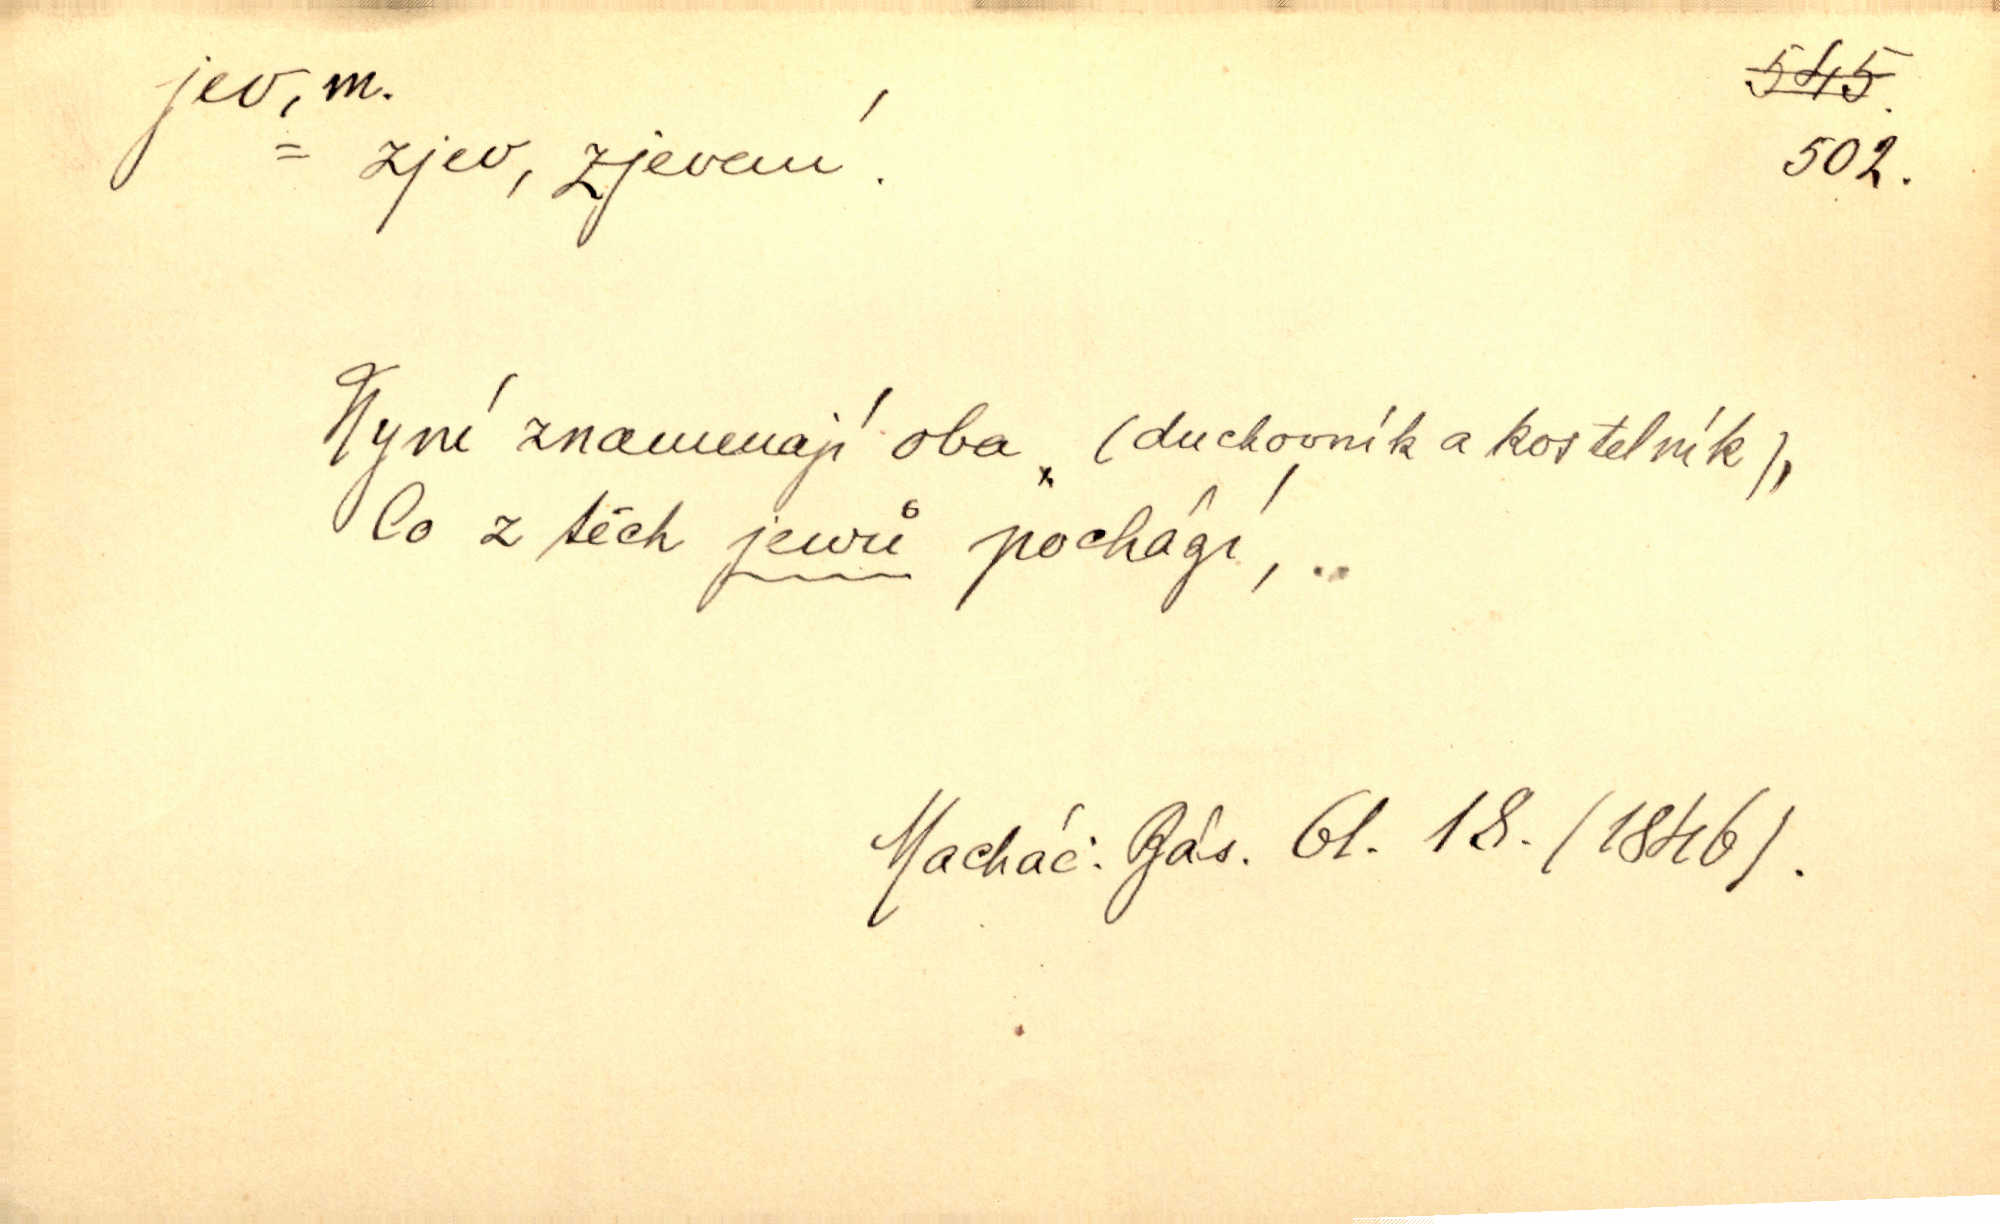 jev, m.
545.
= zjev, zjevení.
502.
Nyní znamenají oba (duchovník a kostelník),
Co z těch jewů pochágí, ..
Macháč. Bás. Ol. 18. (1846).